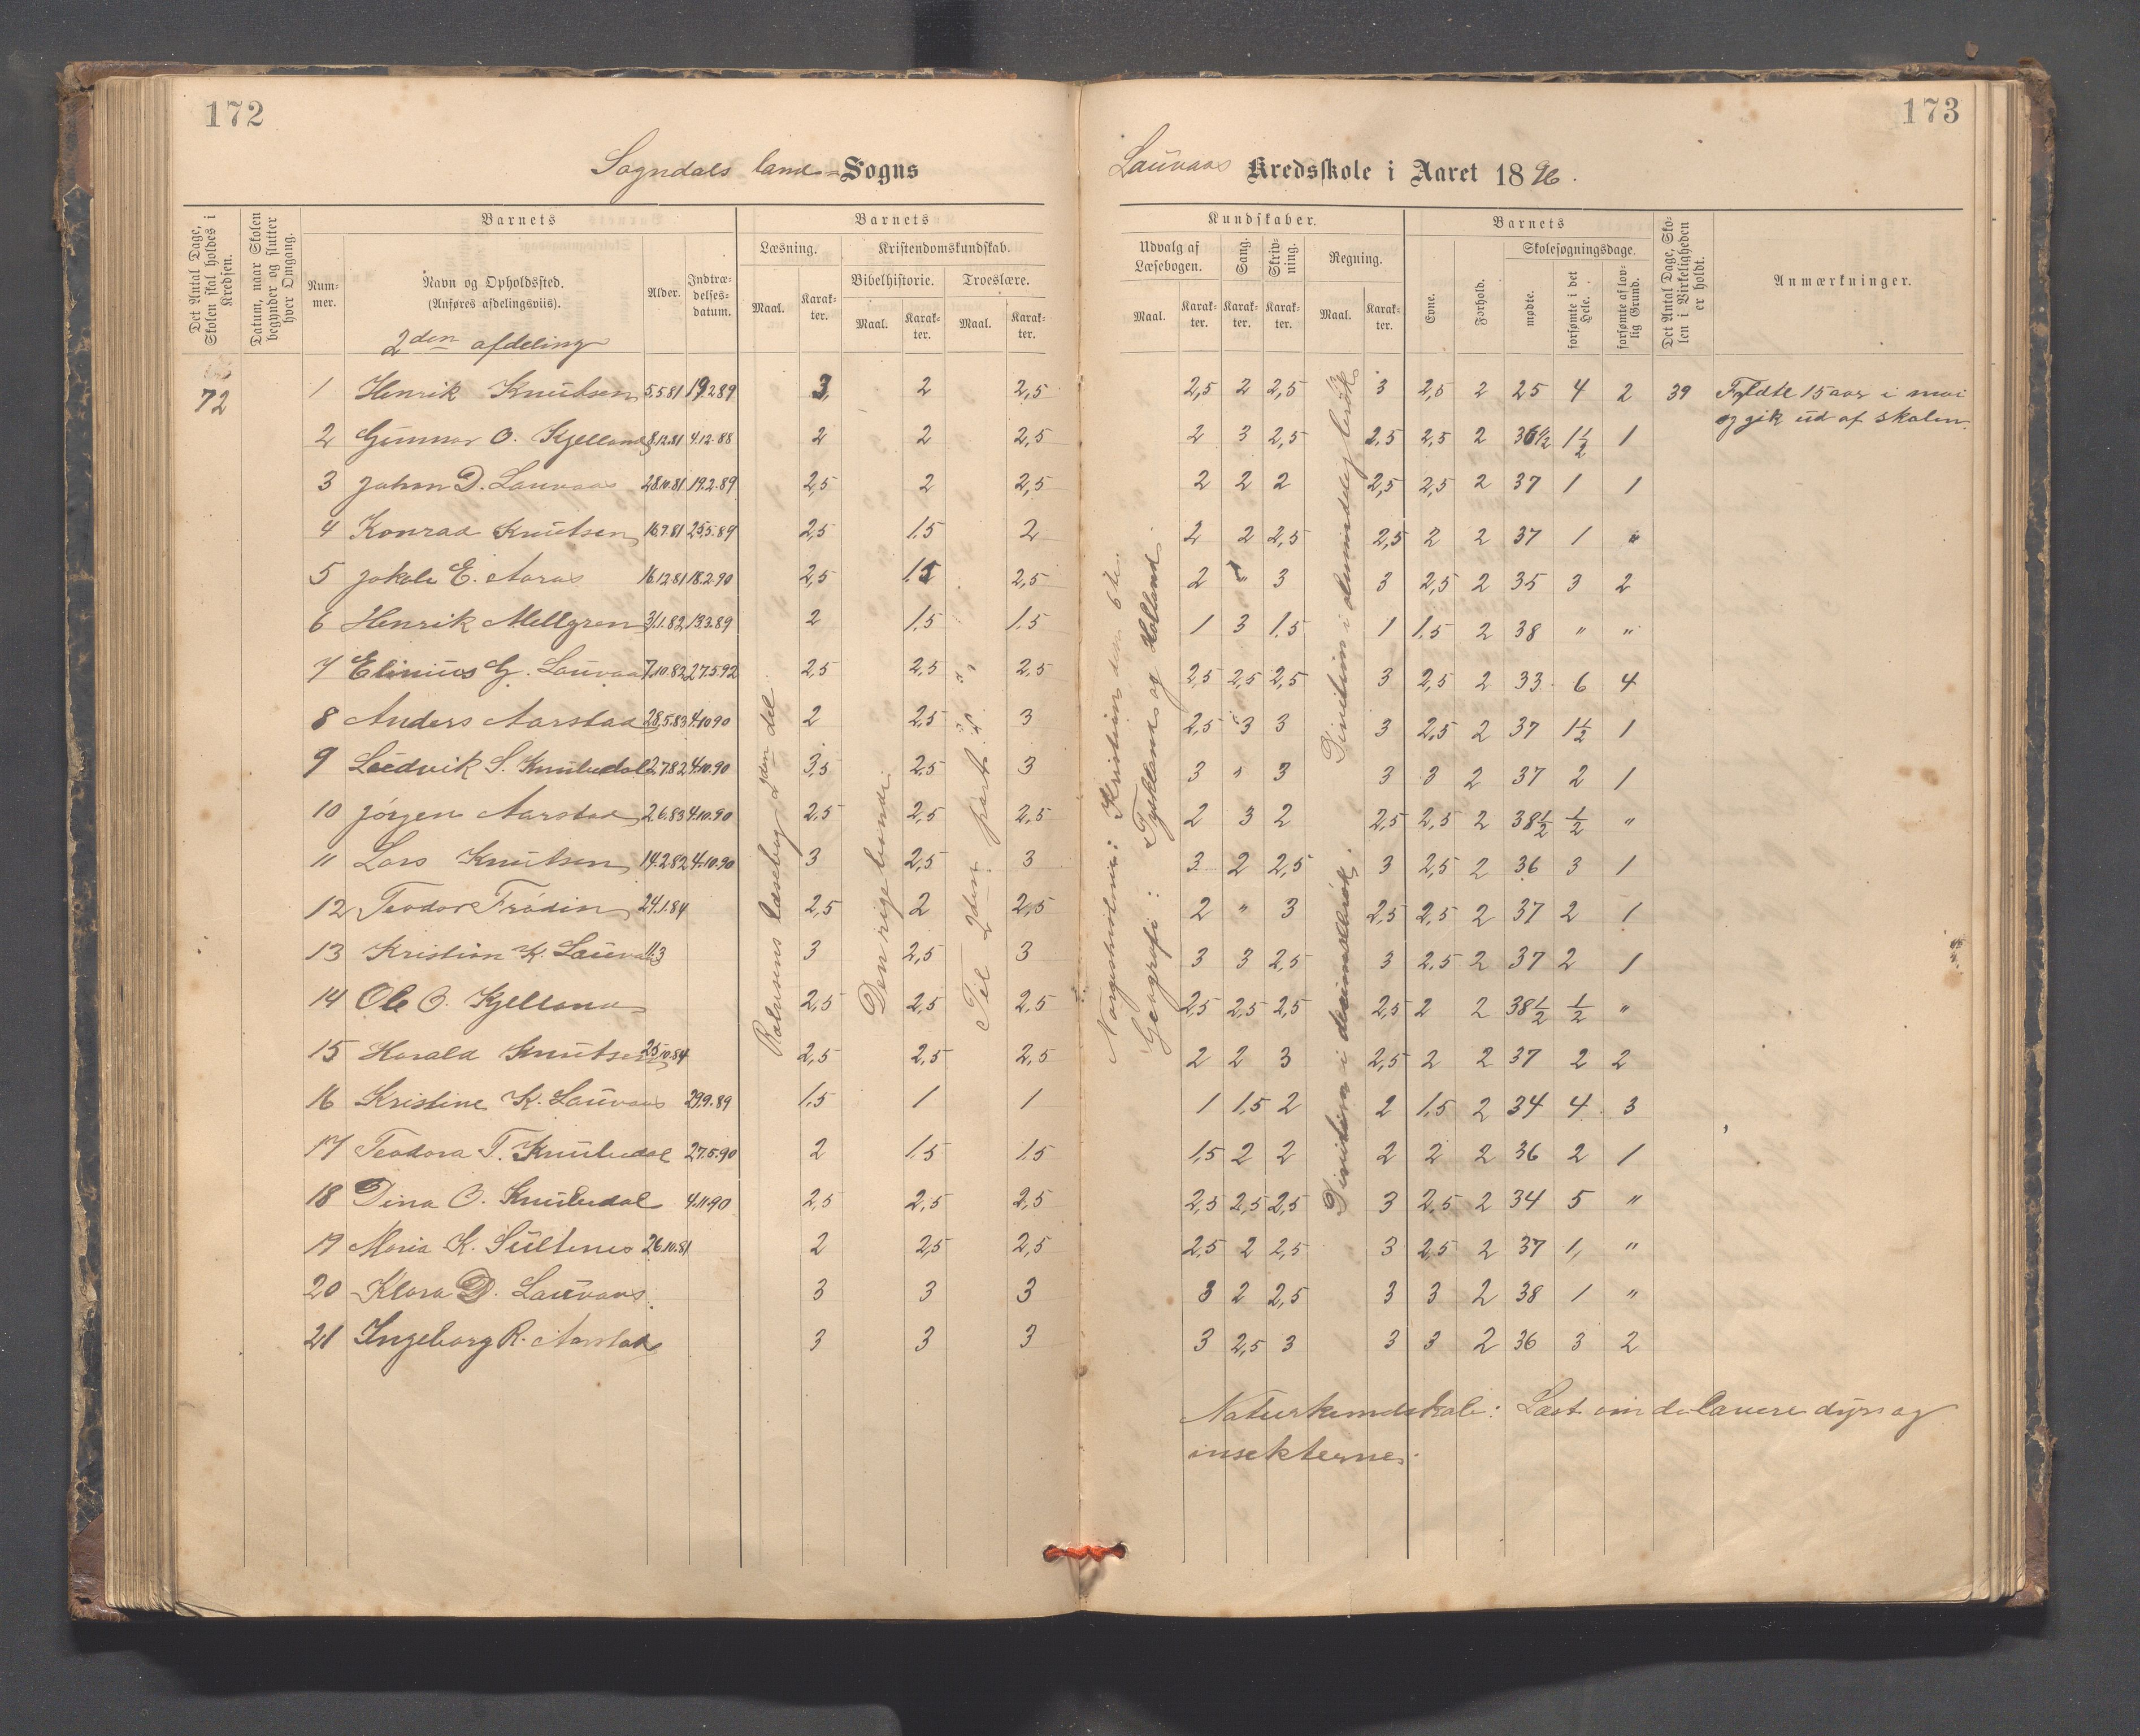 172
Sogndals land-Sogns
Det Antal Dage, Skolen skal holdes i Kredsen.
Datum, naar Skolen begynder og slutter hver Omgang.
Barnets
Nummer.
Navn og Opholdssted.
(Anføres afdelingsviis).
Alder.
Indtrædelses-datum.
Barnets
Læsning.
Kristendomskundskab.
Bibelhistorie.
Troeslære.
Maal.
Karakter.
Maal.
Karakter.
Maal.
Karakter.
2den afdeling
72
1 Henrik Knutsen 5.5.81 19.2.89 3 2 2,5
2 Gunnar O. Kjelland 8.12.81 4.12.88 2 2 2,5
3 Johan D. Lauvaas 28.10.81 19.2.89 2,5 2 2,5
4 Konrad Knutsen 16.9.81 25.5.89 2,5 1.5 2
5 Jakob E. Aaras 16.12.81 18.2.90 2,5 1.5 2,5
6 Henrik Mellgren 31.1.82 13.3.89 2 1.5 1.5
7 Elinius G. Lauvaas 7.10.82 27.5.92 2,5 2,5 2,5
8 Anders Aarstad 28.5.83 4.10.90 2 2,5 3
9 Ludvik S. Knubedal 2.7.82 4.10.90 3,5 2,5 3
10 Jørgen Aarstad 2.6.83 4.10.90 2,5 2,5 2,5
11 Lars Knutsen 14.2.82 4.10.90 3 2,5 3
12 Teodor Frødin 24.1.84 2,5 2 2,5
13 Kristian K. Lauvaas 11.3 3 2,5 3
14 Ole O. Kjelland 2,5 2,5 2,5
15 Harald Knutsen 25.10.84 2,5 2,5 2,5
16 Kristine K. Lauvaas 29.9.89 1.5 1 1
17 Teodora T. Knubedal 27.5.90 2 1.5 1.5
18 Dina O. Knubedal 4.11.90 2,5 2,5 2,5
19 Maria K. Sultenes 26.10.81 2 2,5 2,5
20 Klara D. Lauvaas 3 3 3
21 Ingeborg R. Aarstad 3 3 3
Læsebog 2den del
Til 2den part
173
Lauvaas Kredsskole i Aaret 1896.
Kundskaber.
Udvalg af Læsebogen.
Sang.
Skrivning.
Regning.
Maal.
Karakter.
Karakter.
Karakter.
Maal.
Karakter.
Barnets
Evne.
Forhold.
Skolesøgningsdage.
mødte.
forsømte i det Hele.
forsømte af lovlig Grund.
Det Antal Dage, Skolen i Virkeligheden er holdt.
Anmærkninger.
2,5 2 2,5 3 2,5 2 25 4 2 39 Fyldte 15 aar i mai
og gik ud af skolen.
2 3 2,5 2,5 2,5 2 36 1/2 1 1/2 1
2 2 2 2,5 2,5 2 37 1 1
2 2 2,5 2,5 2 2 37 1 "
2 " 3 3 2,5 2 35 3 2
1 3 1.5 1 1.5 2 38 " "
2,5 2,5 2,5 3 2,5 2 33 6 4
2,5 3 3 3 2,5 2 37 1 1/2 1
3 " 3 3 3 2 37 2 1
2 3 2 2,5 2,5 2 38 1/2 1/2 "
3 2 2,5 3 2,5 2 36 3 1
2 " 3 2,5 2,5 2 37 2 1
3 3 2,5 3 2,5 2 37 2 1
2,5 2,5 2,5 2,5 2 2 38 1/2 1/2 "
2 2 3 2,5 2 2 37 2 2
1 1.5 2 2 1.5 2 34 4 3
1.5 2 2 2 2 2 36 2 1
2,5 2,5 2,5 3 2,5 2 34 5 "
2,5 2 2,5 3 2,5 2 37 1 "
3 2 2,5 3 3 2 38 1 "
3 2,5 3 3 3 2 36 3 2
Norgeshistorie: Kristian den 6te.
Geografi: Tyskland og Holland.
Division i almindelig brøk
Division i decimalbrøk.
Naturkundskab: Læst om de lavere dyr og
insekterne.